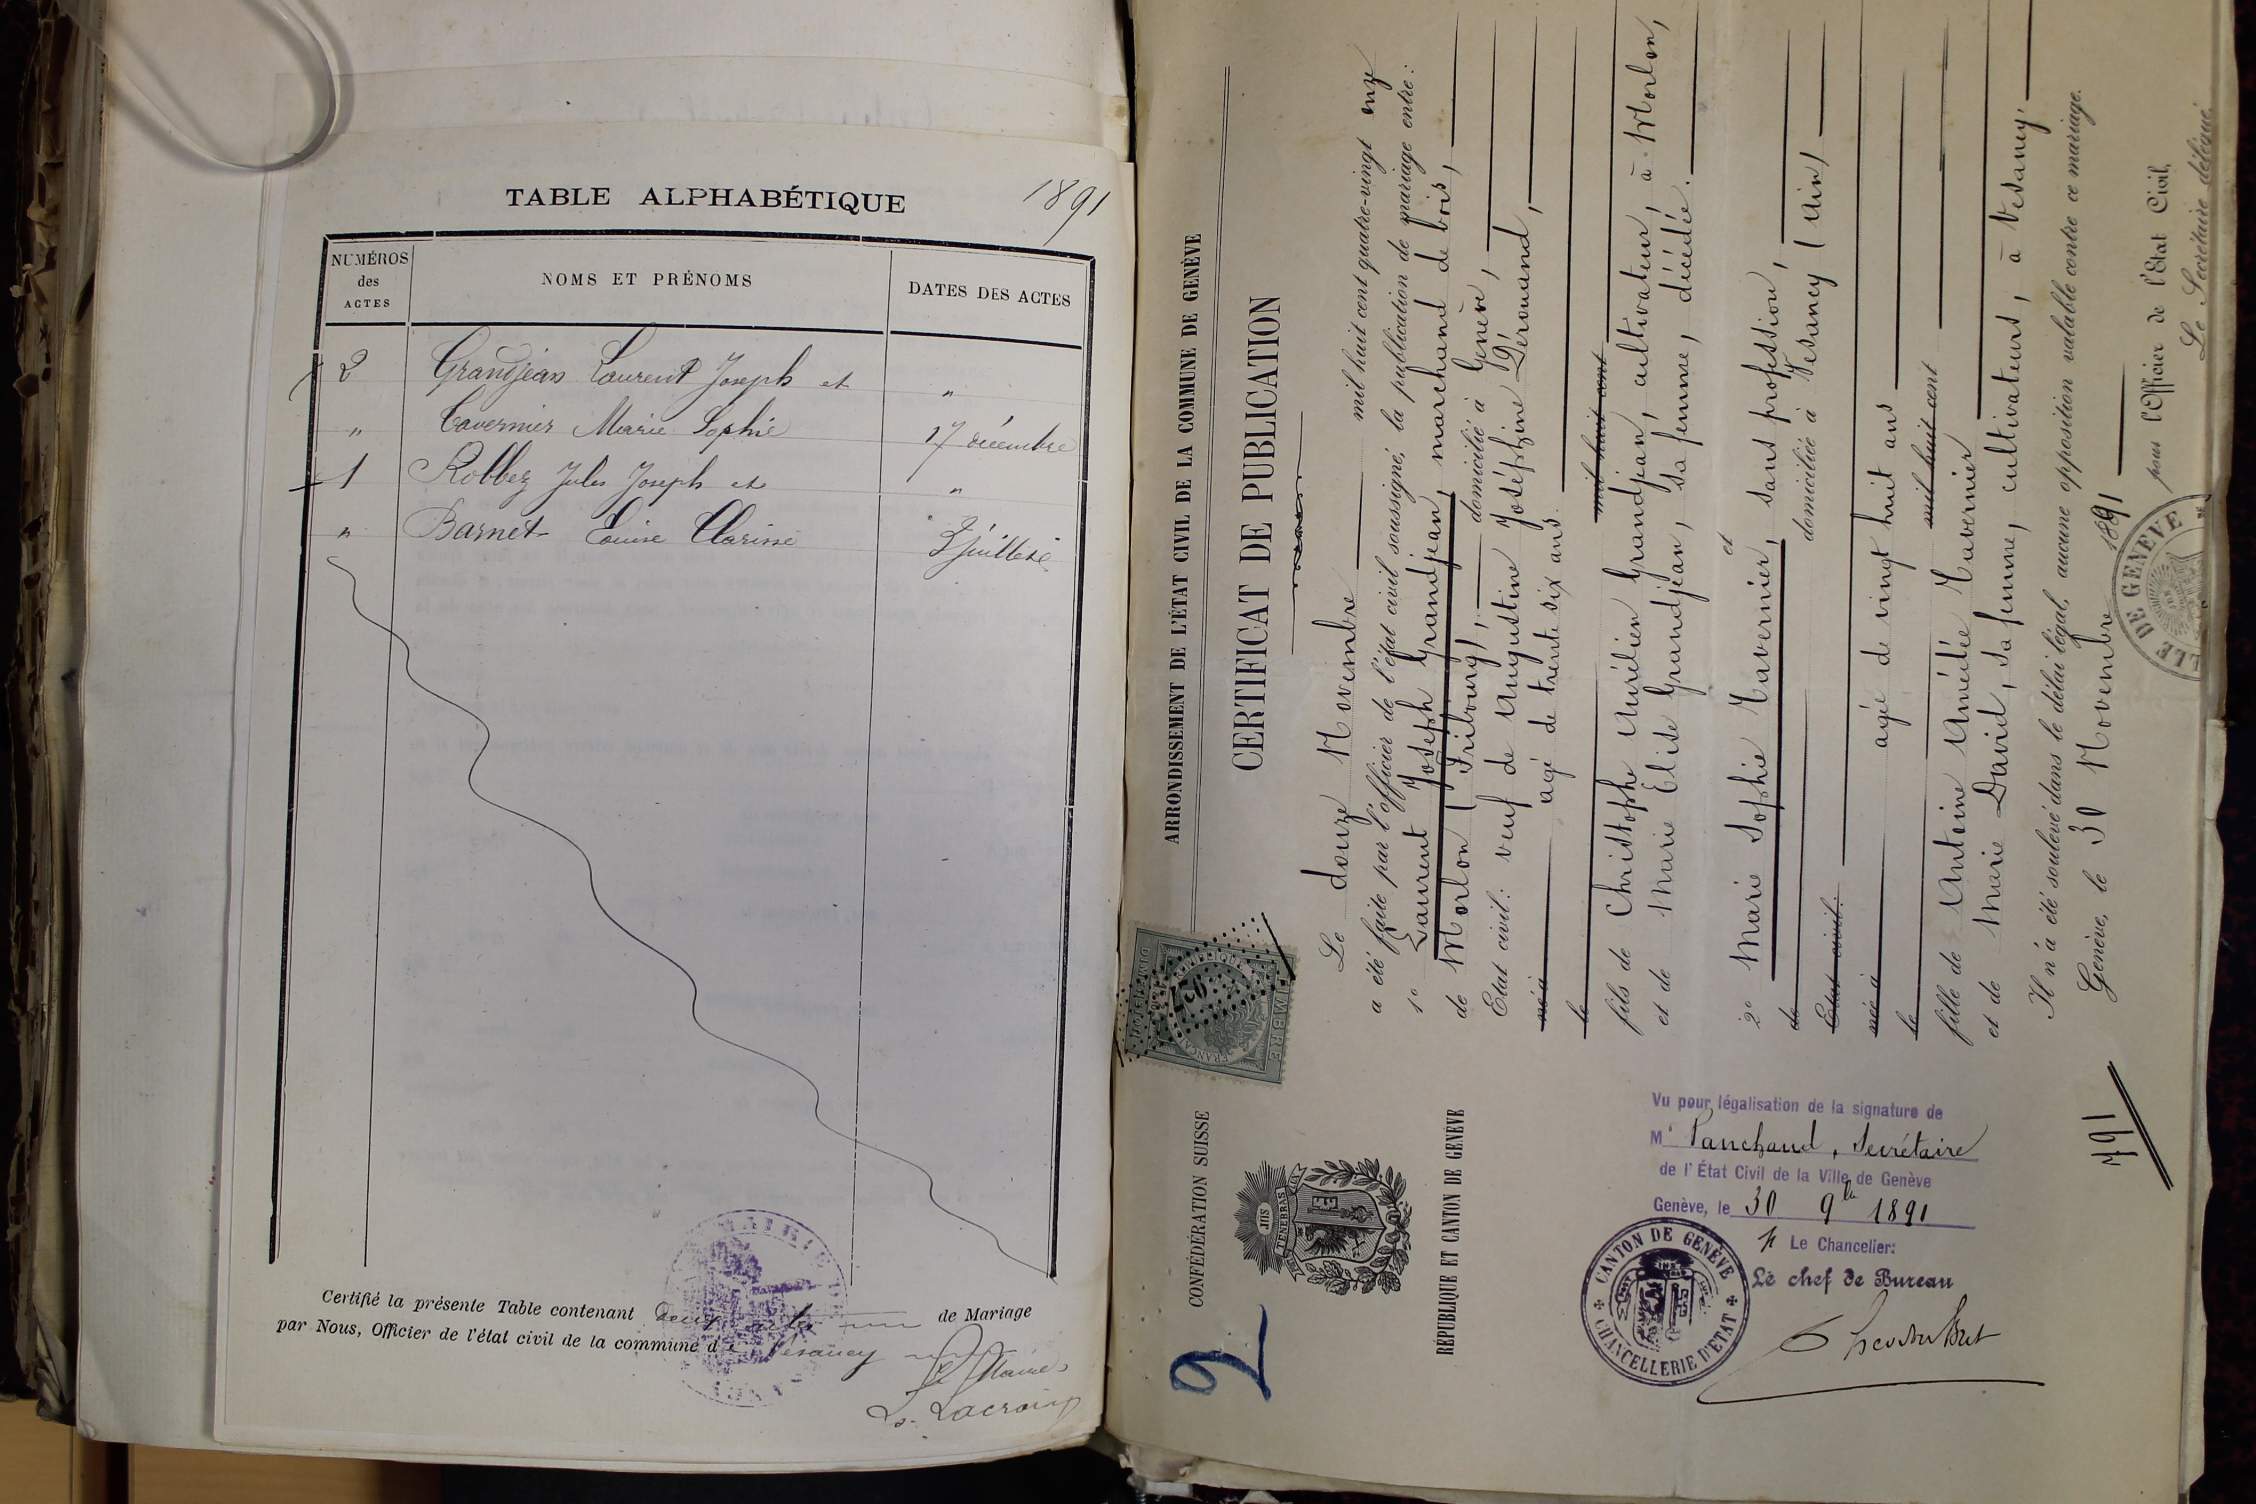 1891
TABLE ALPHABÉTIQUE
NUMÉROS des ACTES
NOMS ET PRÉNOMS
DATES DES ACTES
2 Grandjean Laurent Joseph et "
" Tavernier Marie Sophie 17 décembre
1 Robbez Jules Joseph et "
" Barnet Louise Clarisse 3 juillet
Certifié la présente Table contenant deux actes de Mariage
par Nous, Officier de l'état civil de la commune de Vesancy
Le Maire
Ls. Lacroix
CONFÉDÉRATION SUISSE
RÉPUBLIQUE ET CANTON DE GENÈVE
2
TIMBRE
ARRONDISSEMENT DE L'ÉTAT CIVIL DE LA COMMUNE DE GENÈVE
CERTIFICAT DE PUBLICATION
Le douze Novembre mil huit cent quatre-vingt onze
a été faite par l'officier de l'état civil soussigné, la publication de mariage entre:
1° Laurent Joseph Grandjean, marchand de bois,
de Morlon (Fribourg), domicilié à Genève,
Etat civil: veuf de Augustine Joséphine Déromand,
né à agé de trente six ans.
le mil huit cent
fils de Christophe Aurélien Grandjean, cultivateur, à Morlon,
et de Marie Elise Grandjean, sa femme, décédée.
et
2° Marie Sophie Tavernier, sans profession,
de domiciliée à Vesancy (Ain)
Etat civil:
née à agée de vingt huit ans
le mil huit cent
fille de Antoine Amédée Tavernier
et de Marie David, sa femme, cultivateurs, à Vesancy.
Il n'a été soulevé dans le délai légal, aucune opposition valable contre ce mariage.
Genève, le 30 Novembre 1891
pour l'Officier de l'Etat Civil,
Le Secrétaire délégué.
VILLE DE GENÈVE
791
Vu pour légalisation de la signature de
Mr Panchaud, Secrétaire
de l'État Civil de la Ville de Genève
Genève, le 30 9bre 1891
p Le Chancelier:
Le chef de Bureau
CANTON DE GENÈVE
CHANCELLERIE D'ETAT